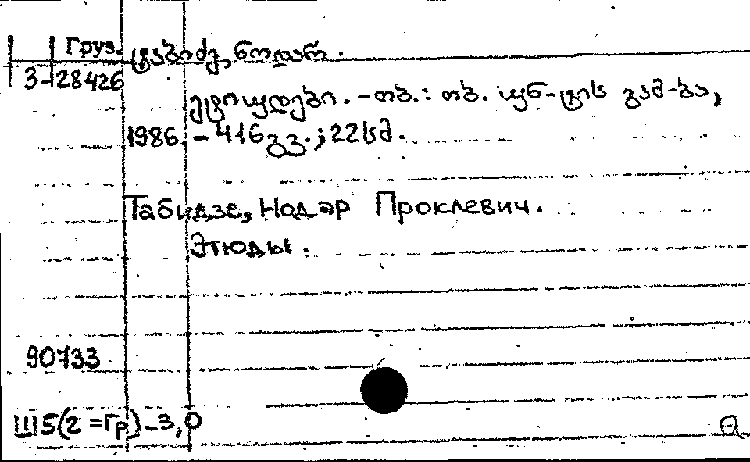 Груз. ტაბიძე, ნოდარ.
3-28426
ეტიუდები. - თბ.: თბ. უნ-ტის გამ-ბა,
1986. - 416 გვ.; 22 სმ.
Табидзе, Нодар Проклевич.
Этюды.
90733
Ш5(2=Гр)-3,0